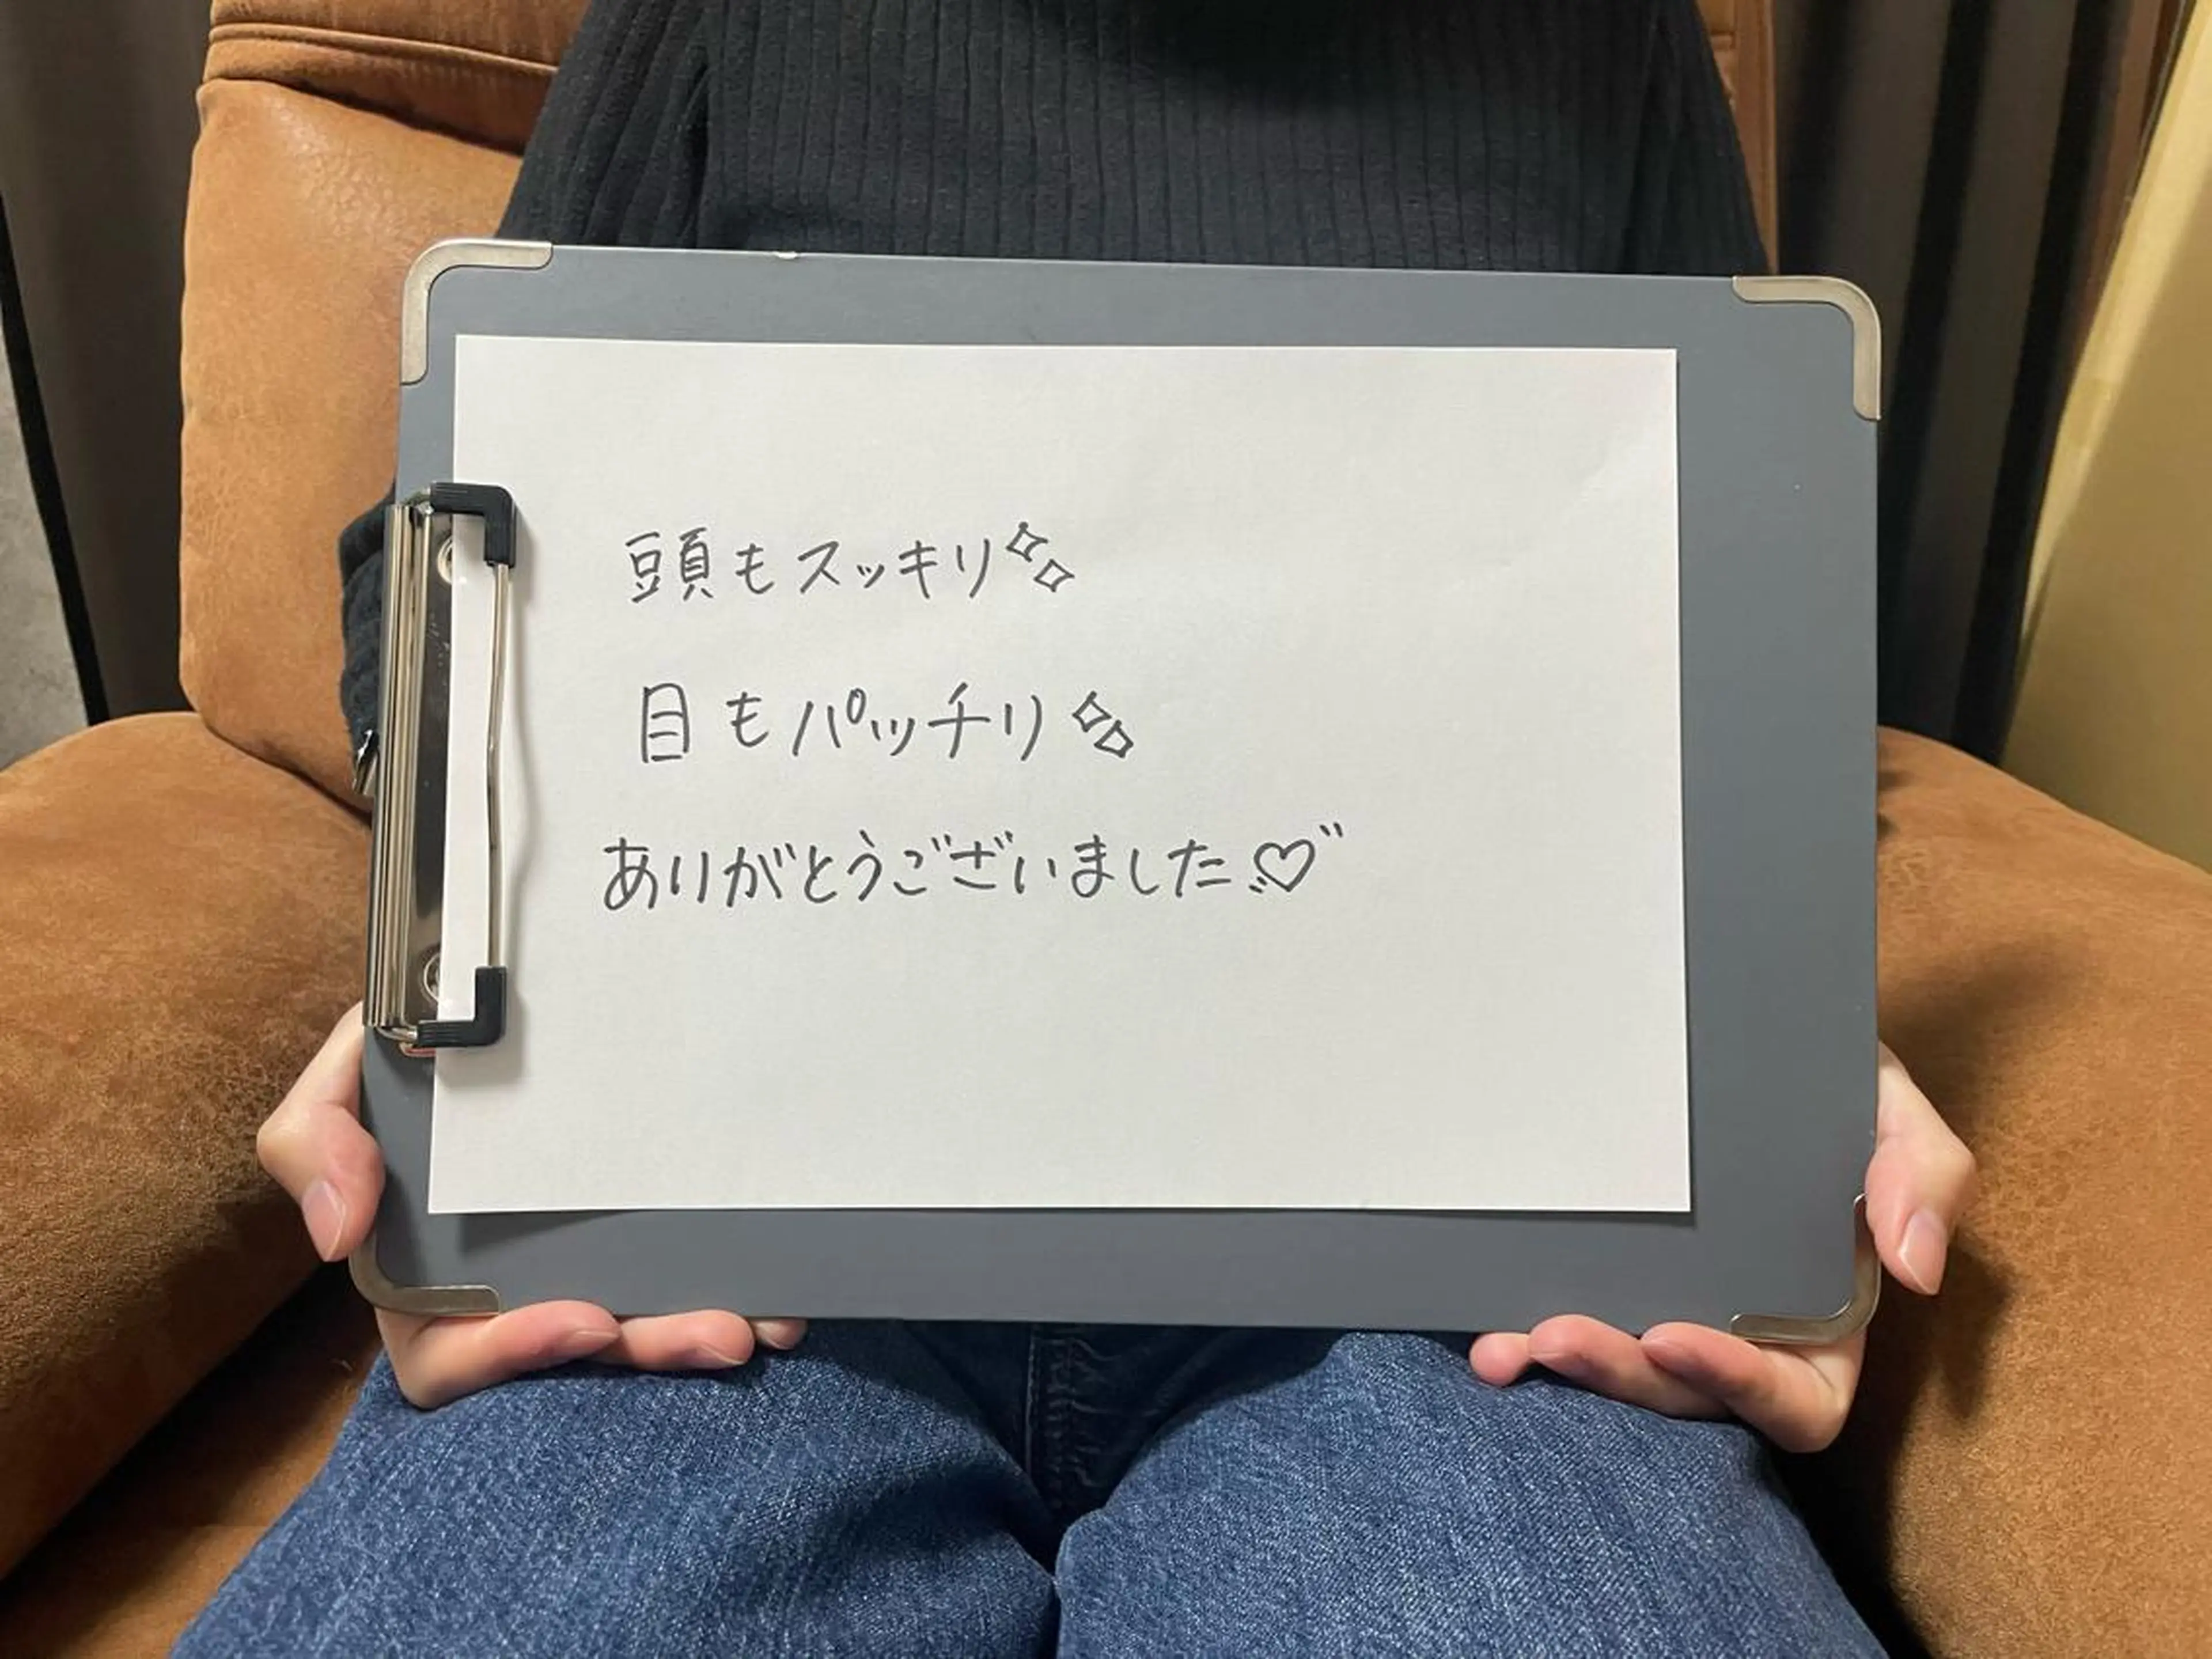 頭もスッキリ✨
目もパッチリ✨
ありがとうございました♡